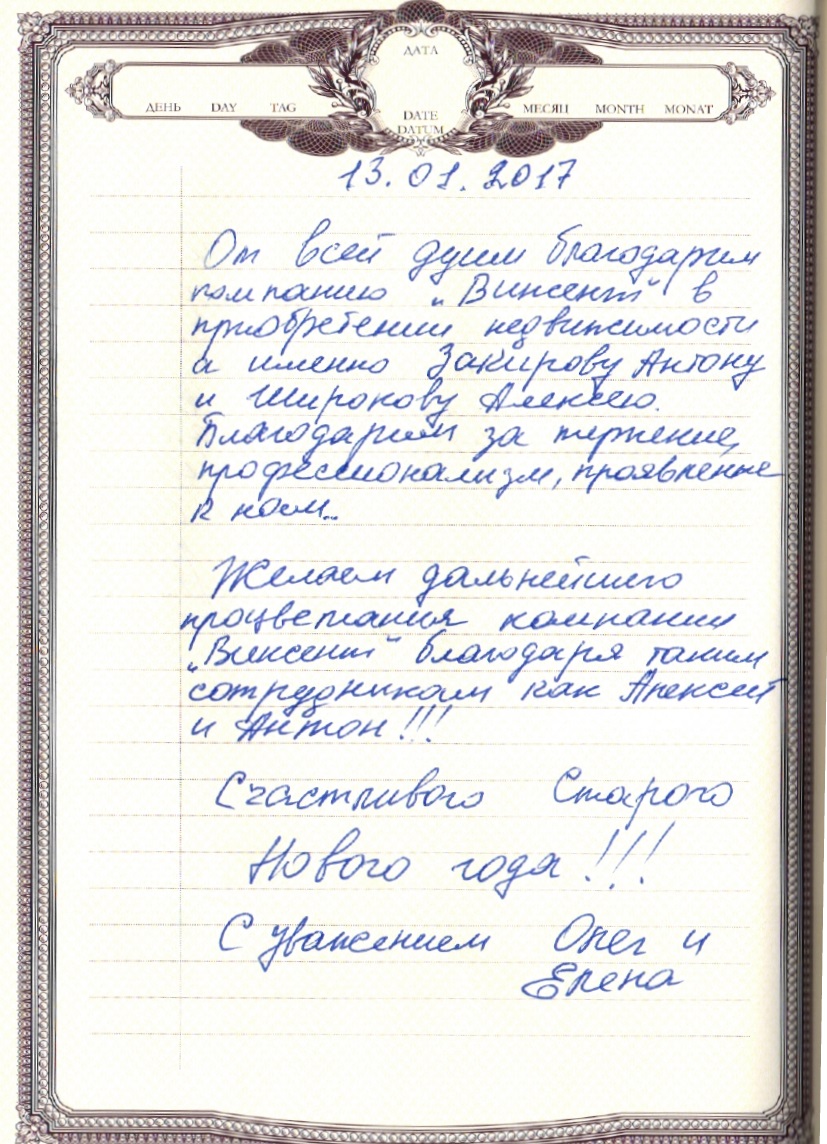 ДАТА
ДЕНЬ DAY TAG
МЕСЯЦ MONTH MONAT
DATE
DATUM
13.01.2017
От всей души благодарим
компанию „Винсент“ в
приобретении недвижимости
а именно Закирову Антону
и Широкову Алексею.
Благодарим за терпение,
профессионализм, проявленные
к нам..
Желаем дальнейшего
процветания компании
„Винсент“ благодаря таким
сотрудникам как Алексей
и Антон!!!
Счастливого Старого
Нового года!!!
С уважением Олег и
Елена